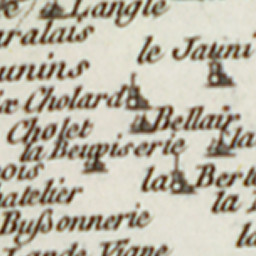 Langle
ralais
le Jauni
unins
Cholard
Bellair
Cholet
la
la Beupiserie
ois
la Bert
hatelier
la
Bußonnerie
la
Lande Vigne